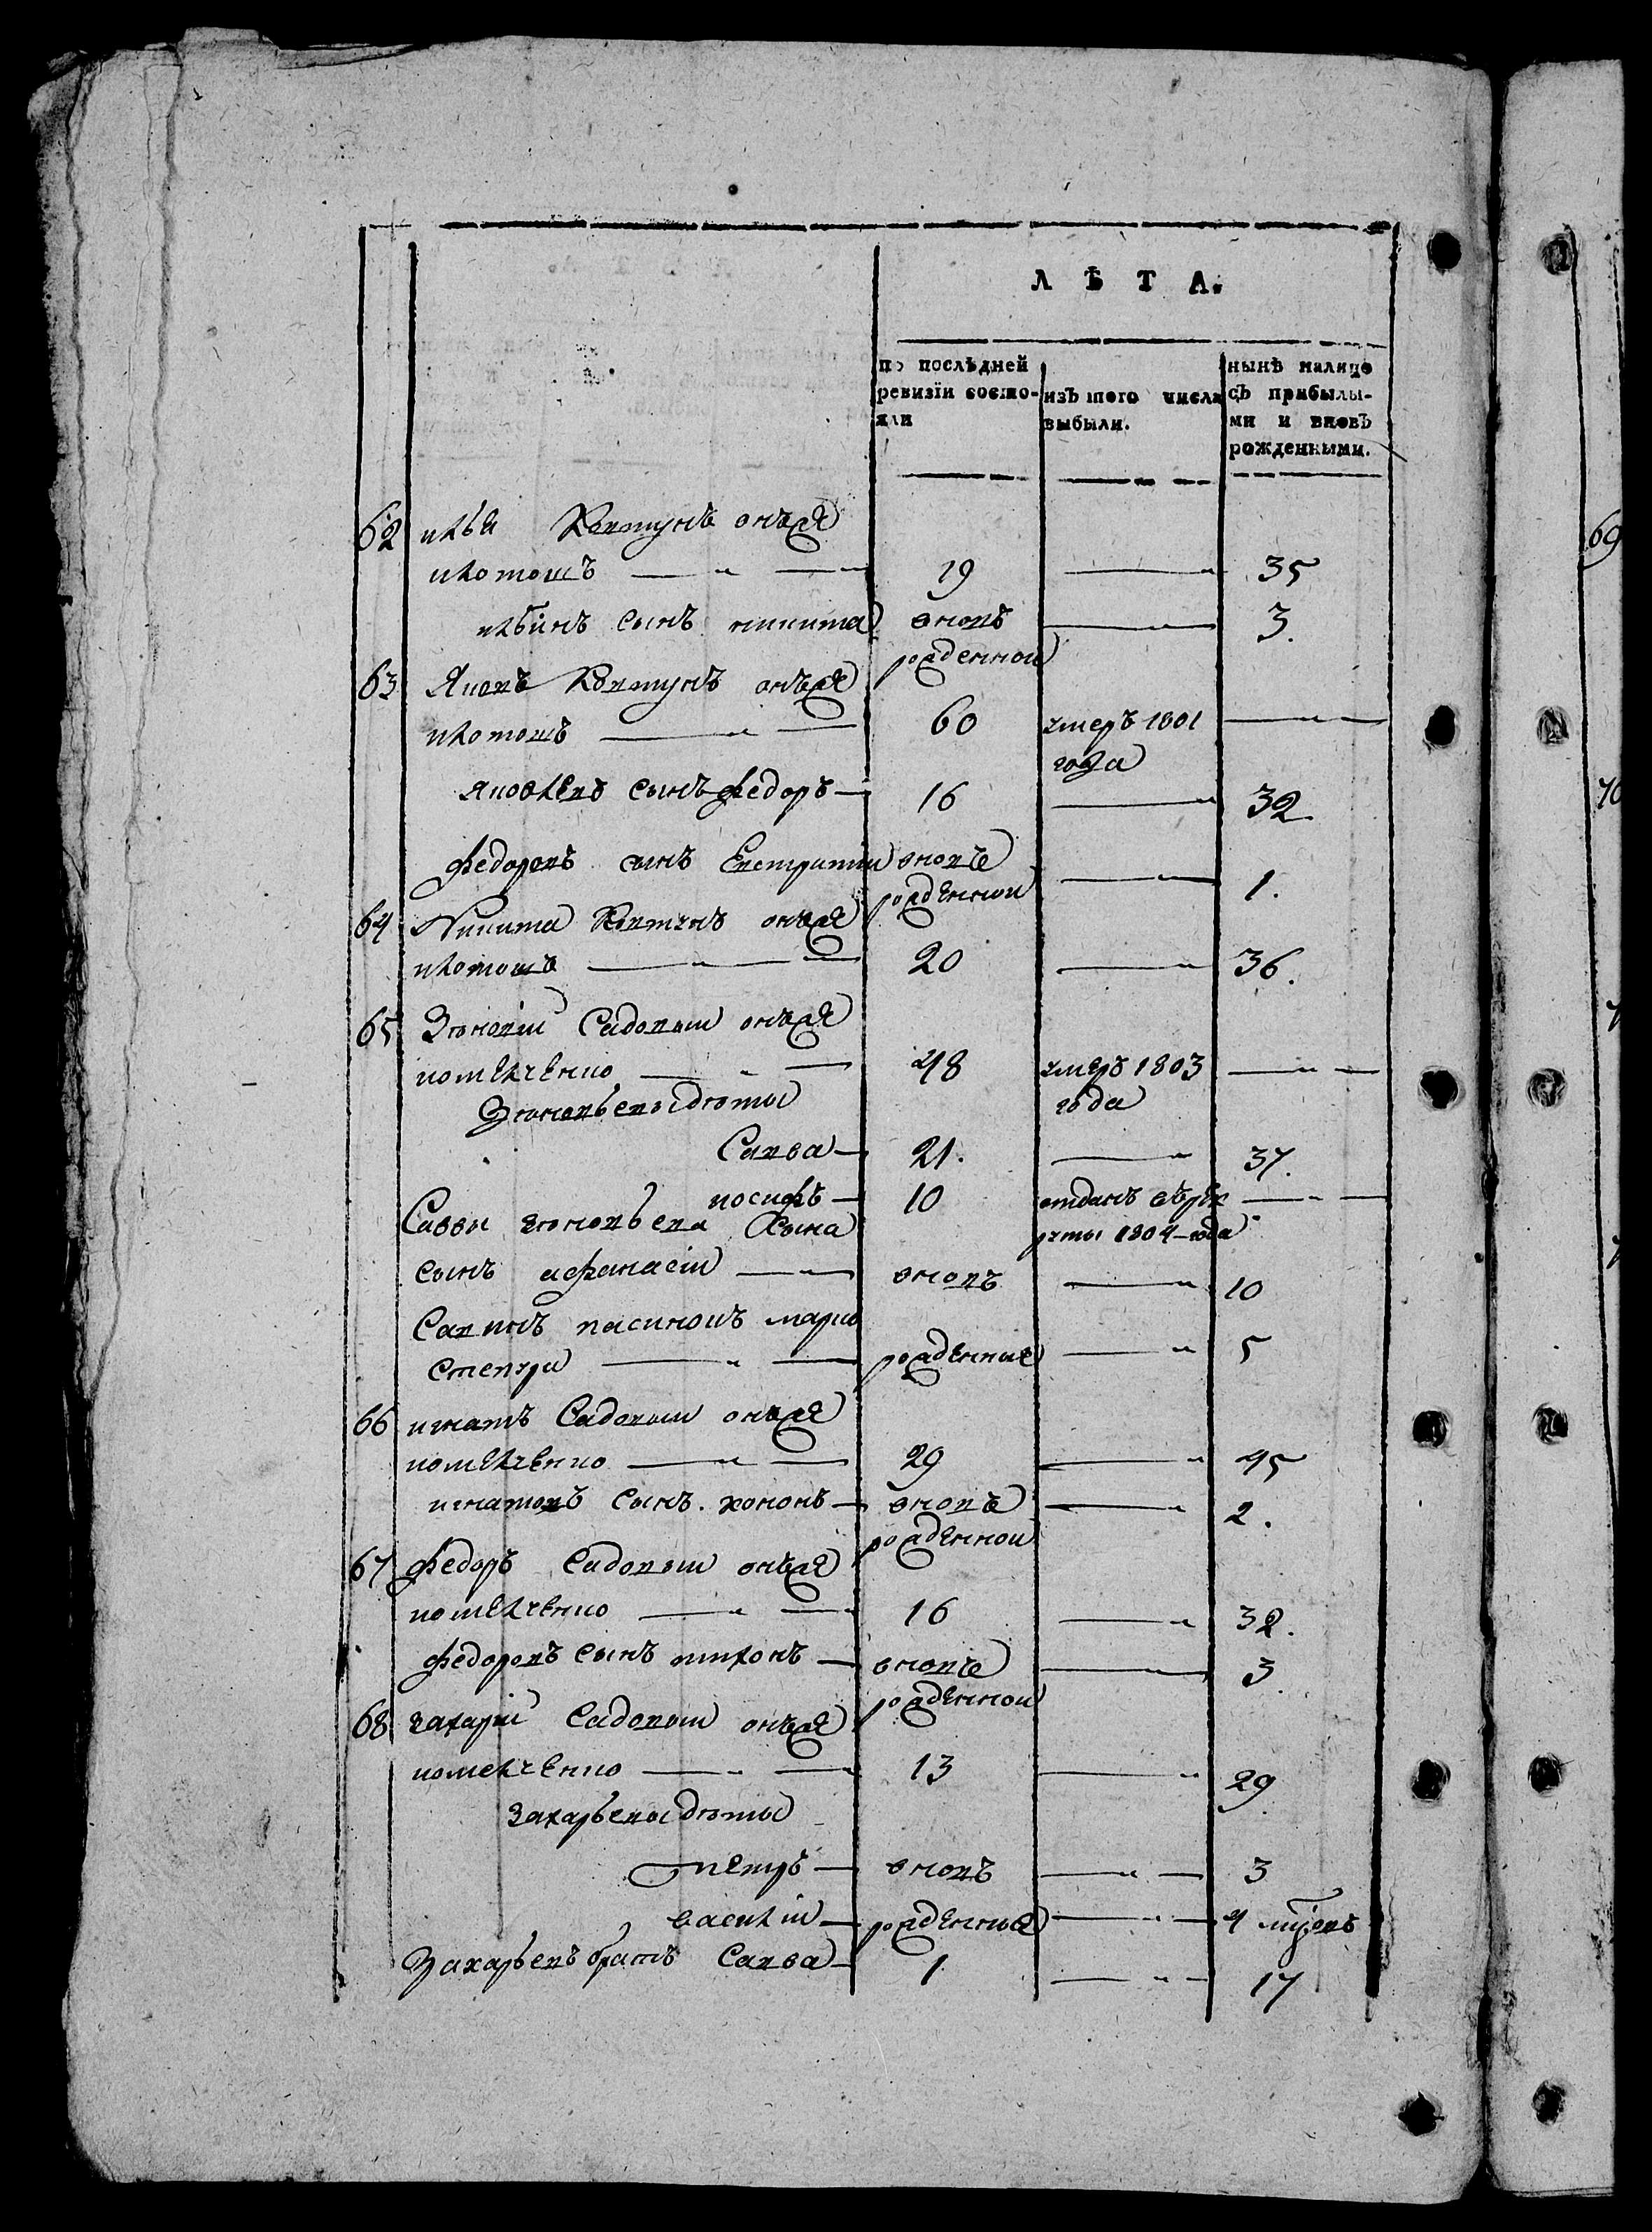 ЛѢТА.
по послѣдней ревизіи состояли
изъ того числа выбыли.
нынѣ налицо съ прибылыми и вновь рожденными.
62 илья Колтунъ онъже
и котошъ 19 — 35
ильинъ сынъ никита вновь рожденной — 3.
63 Яковъ Колтунъ онъже
и котошъ 60 умеръ 1801 года —
яковлевъ сынъ федоръ 16 — 32.
федоровъ сынъ Евстратий вновь рожденной — 1.
64 Никита Колтунъ онъже
и котошъ 20 — 36.
65 Зѣновій Садовыи онъже
помелченко 48 умеръ 1803 года —
Зѣновьевы дѣти
Савва 21. — 37.
иосифъ 10 отданъ въ рекруты 1804 года —
Саввы зѣновьева сына
сынъ афанасіи вновь — 10
Савинъ пасинокъ марко
рожденные — 5
66 игнатъ Садовыи онъже
помелченко 29 — 45
игнатовъ сынъ кононъ вновь рожденной — 2.
67 федоръ Садовыи онъже
помелченко 16 — 32.
федоровъ сынъ тихонъ вновь рожденной — 3.
68 захаріи Садовыи онъже
помелченко 13 — 29.
Захарьевы дѣти
петръ вновь — 3
василіи рожденные — 4
Захарьевъ братъ Савва 1 — 17
69
70